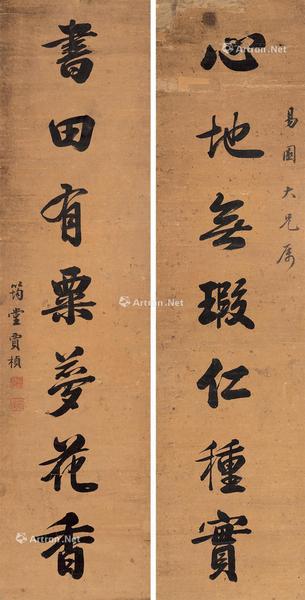 易園大兄屬
心地無瑕仁種實
書田有粟夢花香
筠堂賈楨
Artron.Net
Artron.Net
Artron.Net
Artron.Net
Artron.Net
Artron.Net